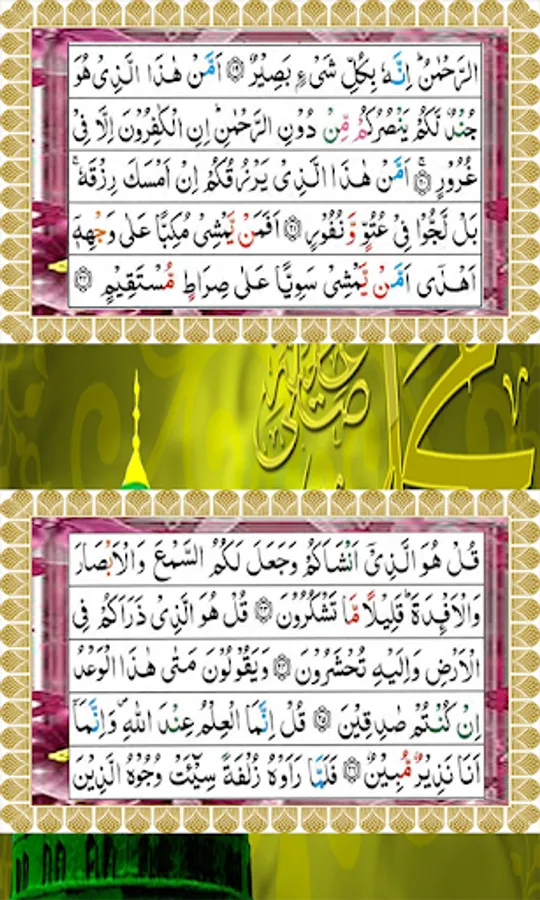 الرَّحْمٰنُ ؕ اِنَّهٗ بِكُلِّ شَیْءٍۭ بَصِیْرٌ ﴿۱۹﴾ اَمَّنْ هٰذَا الَّذِیْ هُوَ
جُنْدٌ لَّكُمْ یَنْصُرُكُمْ مِّنْ دُوْنِ الرَّحْمٰنِ ؕ اِنِ الْكٰفِرُوْنَ اِلَّا فِیْ
غُرُوْرٍ ﴿۲۰﴾ اَمَّنْ هٰذَا الَّذِیْ یَرْزُقُكُمْ اِنْ اَمْسَكَ رِزْقَهٗ ۚ
بَلْ لَّجُّوْا فِیْ عُتُوٍّ وَّ نُفُوْرٍ ﴿۲۱﴾ اَفَمَنْ یَّمْشِیْ مُكِبًّا عَلٰی وَجْهِهٖۤ
اَهْدٰۤی اَمَّنْ یَّمْشِیْ سَوِیًّا عَلٰی صِرَاطٍ مُّسْتَقِیْمٍ ﴿۲۲﴾
صلى
قُلْ هُوَ الَّذِیْۤ اَنْشَاَكُمْ وَجَعَلَ لَكُمُ السَّمْعَ وَالْاَبْصَارَ
وَالْاَفْـِٕدَةَ ؕ قَلِیْلًا مَّا تَشْكُرُوْنَ ﴿۲۳﴾ قُلْ هُوَ الَّذِیْ ذَرَاَكُمْ فِی
الْاَرْضِ وَاِلَیْهِ تُحْشَرُوْنَ ﴿۲۴﴾ وَیَقُوْلُوْنَ مَتٰی هٰذَا الْوَعْدُ
اِنْ كُنْتُمْ صٰدِقِیْنَ ﴿۲۵﴾ قُلْ اِنَّمَا الْعِلْمُ عِنْدَ اللّٰهِ ۪ وَاِنَّمَاۤ
اَنَا نَذِیْرٌ مُّبِیْنٌ ﴿۲۶﴾ فَلَمَّا رَاَوْهُ زُلْفَةً سِیْٓـَٔتْ وُجُوْهُ الَّذِیْنَ